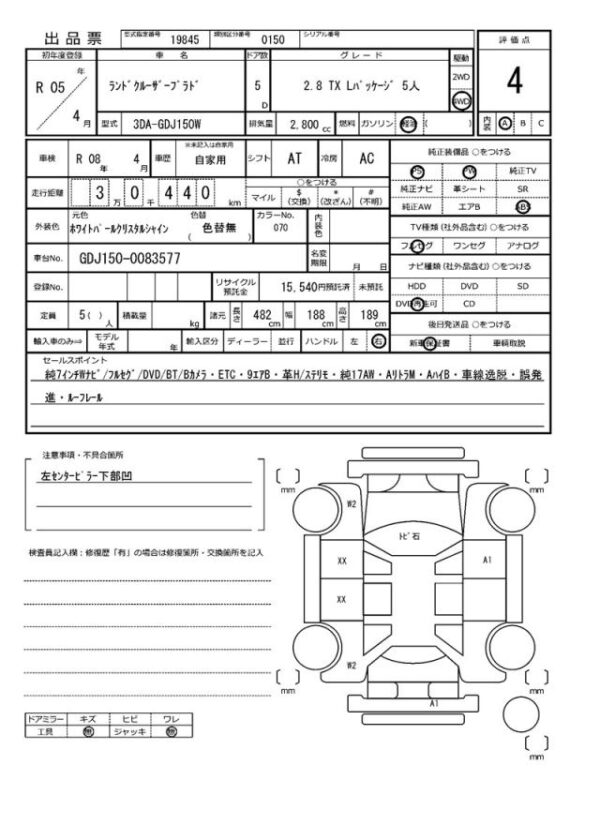 出品票 型式指定番号 19845 類別区分番号 0150 シリアル番号
初年度登録 車名 ドア数 グレード 駆動 評価点
R 05 年 4 月 ランドクルーザープラド 5 D 2.8 TX Lパッケージ 5人 2WD 4WD 4
型式 3DA-GDJ150W 排気量 2,800 cc 燃料 ガソリン 軽油 ( ) 内装 A B C
車検 R 08 年 4 月 車歴 ※未記入は自家用 自家用 シフト AT 冷房 AC
純正装備品 ○をつける
PS PW 純正TV
純正ナビ 革シート SR
純正AW エアB ABS
走行距離 3 万 0 千 4 4 0 km ○をつける
マイル $ (交換) * (改ざん) # (不明)
外装色 元色 ホワイトパールクリスタルシャイン 色替 ( 色替無 ) カラーNo. 070 内装色
TV種類 (社外品含む) ○をつける
フルセグ ワンセグ アナログ
車台No. GDJ150-0083577 名変期限 月 日
ナビ種類 (社外品含む) ○をつける
HDD DVD SD
DVD再生可 CD
登録No. リサイクル預託金 15,540円預託済 未預託
定員 5 ( ) 人 積載量 kg 諸元 長さ 482 cm 幅 188 cm 高さ 189 cm
後日発送品 ○をつける
新車保証書 車輌取説
輸入車のみ⇒ モデル年式 年 輸入区分 ディーラー 並行 ハンドル 左 右
セールスポイント
純7インチWナビ/フルセグ/DVD/BT/Bカメラ・ETC・9エアB・革H/ステリモ・純17AW・AリトラM・AハイB・車線逸脱・誤発
進・ルーフレール
注意事項・不具合箇所
左センターピラー下部凹
検査員記入欄：修復歴「有」の場合は修復箇所・交換箇所を記入
[ ] mm [ ] mm
W2
トビ石
XX A1
XX
W2
[ ] mm [ ] mm
A1
[ ] mm
ドアミラー キズ ヒビ ワレ
工具 無 ジャッキ 無